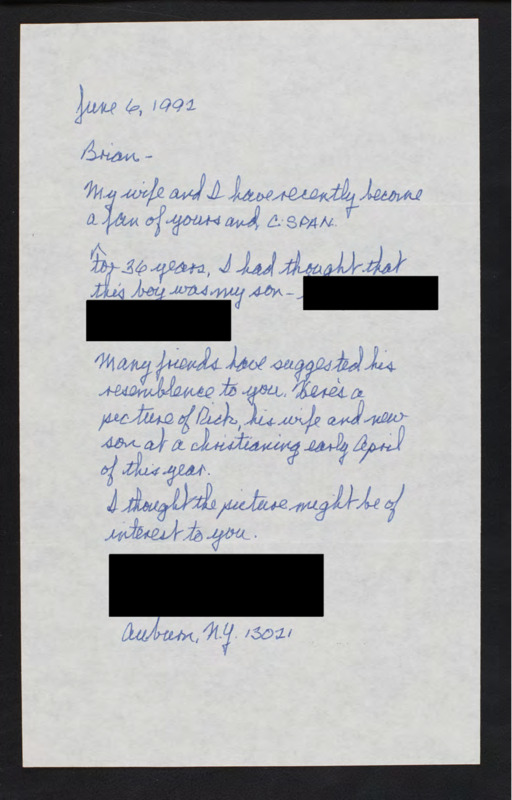 June 6, 1992
Brian -
My wife and I have recently become
a fan of yours and C-SPAN.
For 36 years, I had thought that
this boy was my son -
Many friends have suggested his
resemblence to you. Here's a
picture of Rick, his wife and new
son at a christianing early April
of this year.
I thought the picture might be of
interest to you.
Auburn, N.Y. 13021